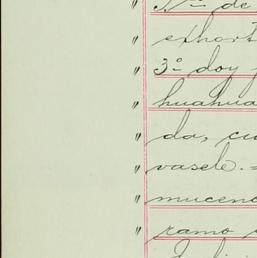 " Nº de
" exhort
" 3º doy
" huahua
" da, cu
" vasele.=
" mucend
" ramo
"